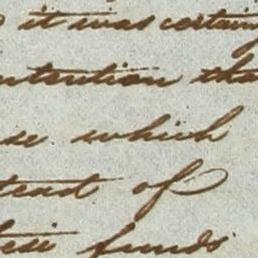 it was certainly
intention tha
se which
tead of
their funds